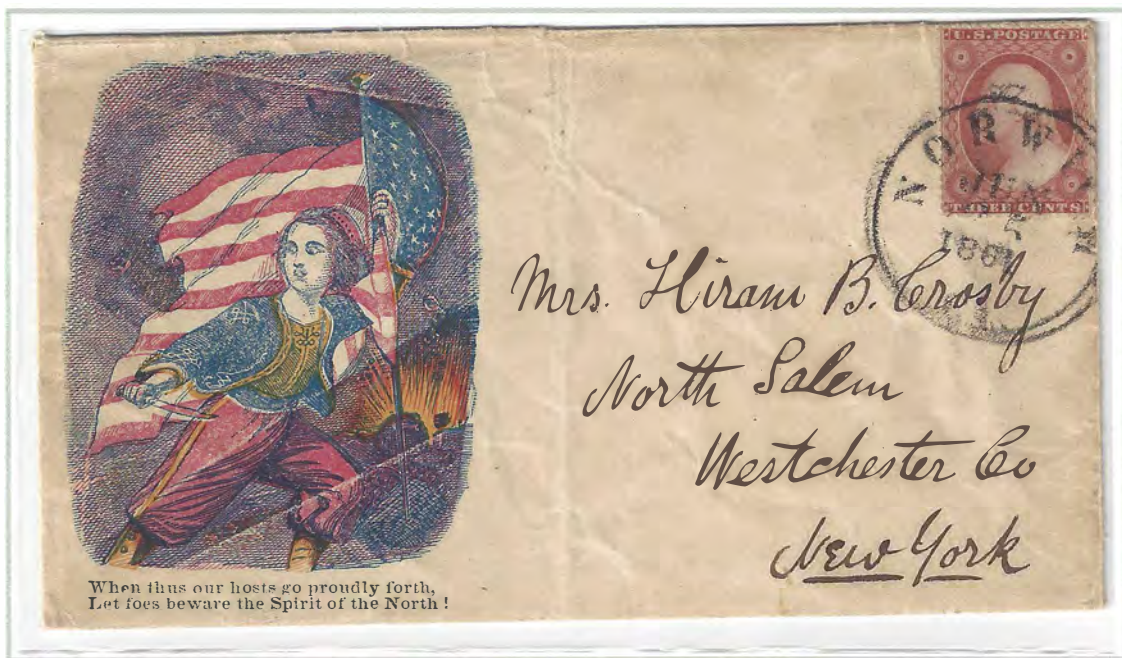 U.S. POSTAGE
THREE CENTS
Mrs. Hiram B. Crosby
North Salem
Westchester Co
New York
When thus our hosts go proudly forth,
Let foes beware the Spirit of the North!